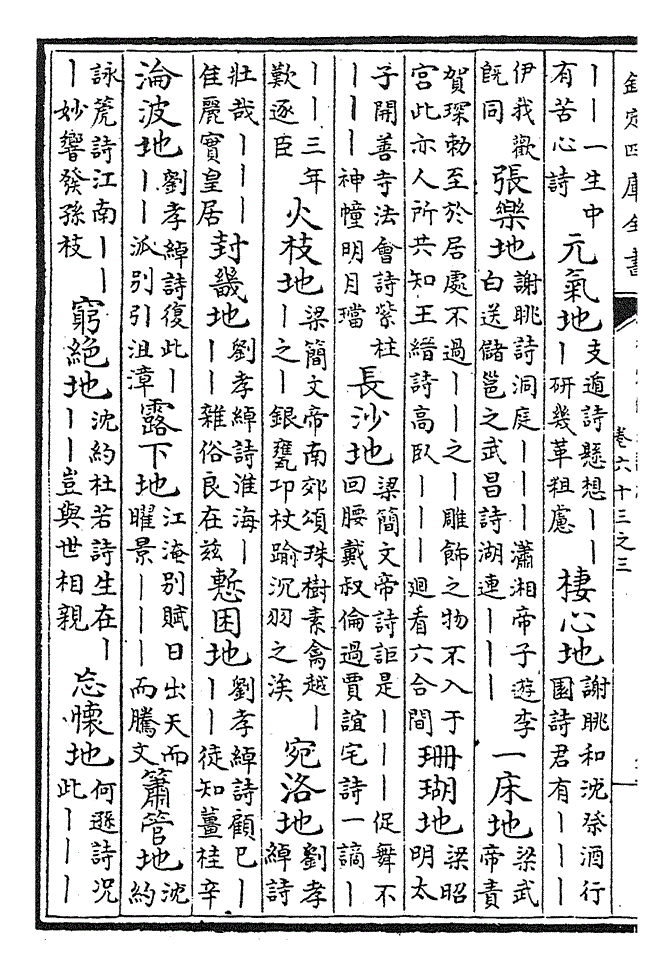 欽定四庫全書 卷六十三之三
｜｜一生中有苦心詩 元氣地 支遁詩懸想｜｜｜研幾革粗慮 棲心地 謝眺和沈祭酒行園詩君有｜｜｜
伊我歡既同 張樂地 謝眺詩洞庭｜｜｜瀟湘帝子遊李白送儲邕之武昌詩湖連｜｜｜ 一床地 梁武帝責
賀琛勅至於居處不過｜｜之｜雕飾之物不入于宮此亦人所共知王縉詩高卧｜｜｜迴看六合間 珊瑚地 梁昭明太
子開善寺法會詩紫柱｜｜｜神幢明月璫 長沙地 梁簡文帝詩詎是｜｜｜促舞不回腰戴叔倫過賈誼宅詩一謫｜
｜｜三年歎逐臣 火枝地 梁簡文帝南郊頌珠樹素禽越｜｜之｜銀甕卭杖踰沉羽之涘 宛洛地 劉孝綽詩
壯哉｜｜｜佳麗實皇居 封畿地 劉孝綽詩淮海｜｜｜雜俗良在兹 慙困地 劉孝綽詩顧已｜｜｜徒知薑桂辛
淪波地 劉孝綽詩復此｜｜｜派別引沮漳 露下地 江淹別賦日出天而曜景｜｜｜而騰文 簫管地 沈約
詠篪詩江南｜｜｜妙響發孫枝 窮絶地 沈約杜若詩生在｜｜｜豈與世相親 忘懷地 何遜詩况此｜｜｜